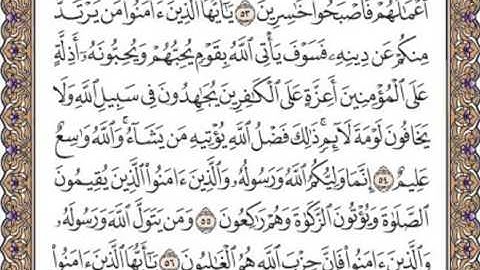 أَعۡمَٰلُهُمۡ فَأَصۡبَحُواْ خَٰسِرِينَ ٥٣ يَٰٓأَيُّهَا ٱلَّذِينَ ءَامَنُواْ مَن يَرۡتَدَّ
مِنكُمۡ عَن دِينِهِۦ فَسَوۡفَ يَأۡتِي ٱللَّهُ بِقَوۡمٖ يُحِبُّهُمۡ وَيُحِبُّونَهُۥٓ أَذِلَّةٍ
عَلَى ٱلۡمُؤۡمِنِينَ أَعِزَّةٍ عَلَى ٱلۡكَٰفِرِينَ يُجَٰهِدُونَ فِي سَبِيلِ ٱللَّهِ وَلَا
يَخَافُونَ لَوۡمَةَ لَآئِمٖۚ ذَٰلِكَ فَضۡلُ ٱللَّهِ يُؤۡتِيهِ مَن يَشَآءُۚ وَٱللَّهُ وَٰسِعٌ
عَلِيمٌ ٥٤ إِنَّمَا وَلِيُّكُمُ ٱللَّهُ وَرَسُولُهُۥ وَٱلَّذِينَ ءَامَنُواْ ٱلَّذِينَ يُقِيمُونَ
ٱلصَّلَوٰةَ وَيُؤۡتُونَ ٱلزَّكَوٰةَ وَهُمۡ رَٰكِعُونَ ٥٥ وَمَن يَتَوَلَّ ٱللَّهَ وَرَسُولَهُۥ
وَٱلَّذِينَ ءَامَنُواْ فَإِنَّ حِزۡبَ ٱللَّهِ هُمُ ٱلۡغَٰلِبُونَ ٥٦ يَٰٓأَيُّهَا ٱلَّذِينَ ءَامَنُواْ